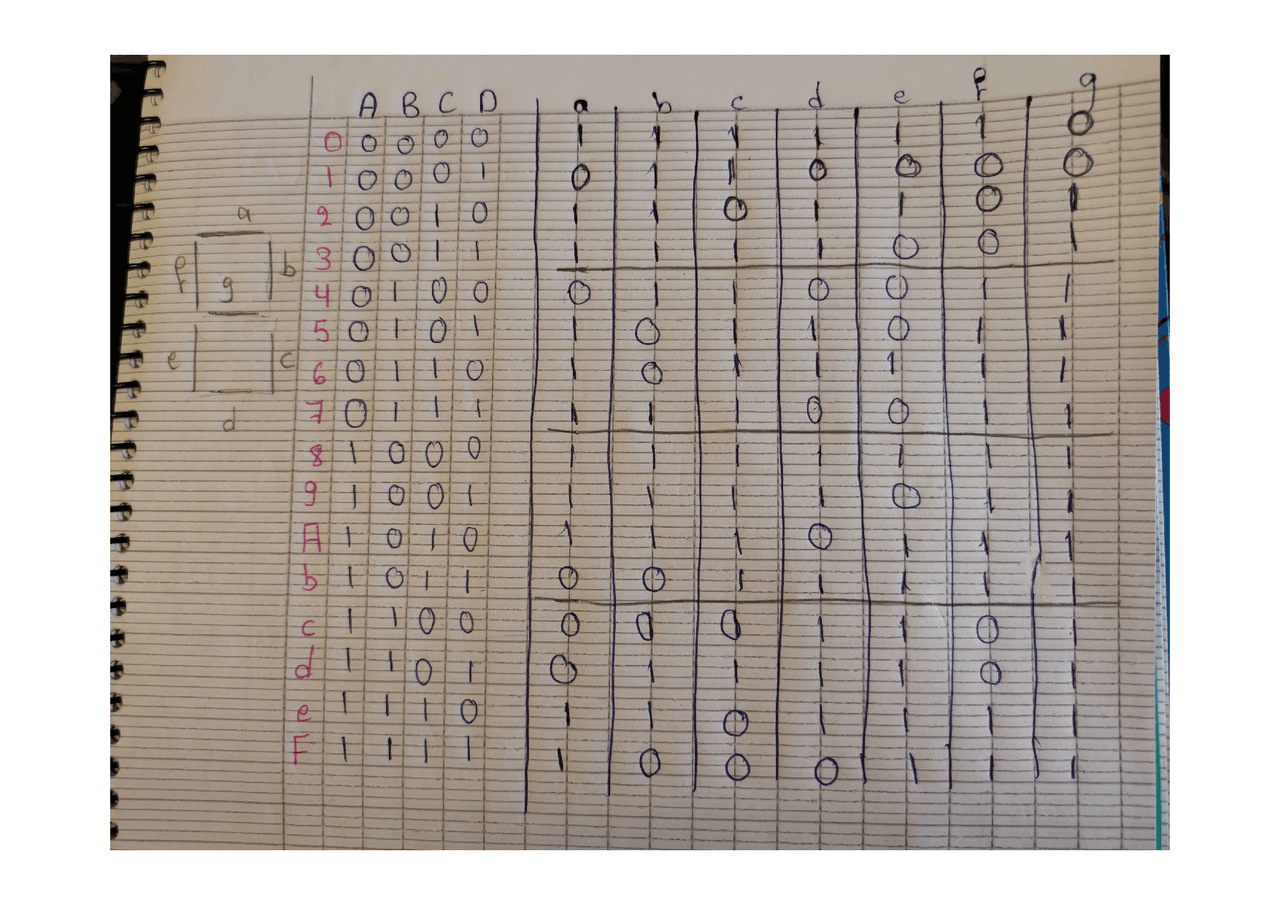 A B C D a b c d e f g
0 0 0 0 0 1 1 1 1 1 1 0
1 0 0 0 1 0 1 1 0 0 0 0
2 0 0 1 0 1 1 0 1 1 0 1
3 0 0 1 1 1 1 1 1 0 0 1
4 0 1 0 0 0 1 1 0 0 1 1
5 0 1 0 1 1 0 1 1 0 1 1
6 0 1 1 0 1 0 1 1 1 1 1
7 0 1 1 1 1 1 1 0 0 1 1
8 1 0 0 0 1 1 1 1 1 1 1
9 1 0 0 1 1 1 1 1 0 1 1
A 1 0 1 0 1 1 1 0 1 1 1
b 1 0 1 1 0 0 1 1 1 1 1
c 1 1 0 0 0 0 0 1 1 0 1
d 1 1 0 1 0 1 1 1 1 0 1
e 1 1 1 0 1 1 0 1 1 1 1
F 1 1 1 1 1 0 0 0 1 1 1
a
f g b
e c
d